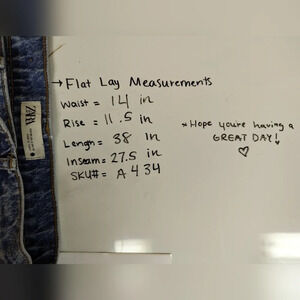 → Flat Lay Measurements
Waist = 14 in
Rise = 11.5 in
Lengh = 38 in
Inseam = 27.5 in
SKU# = A434
*Hope you're having a
GREAT DAY!
♡
ZARA